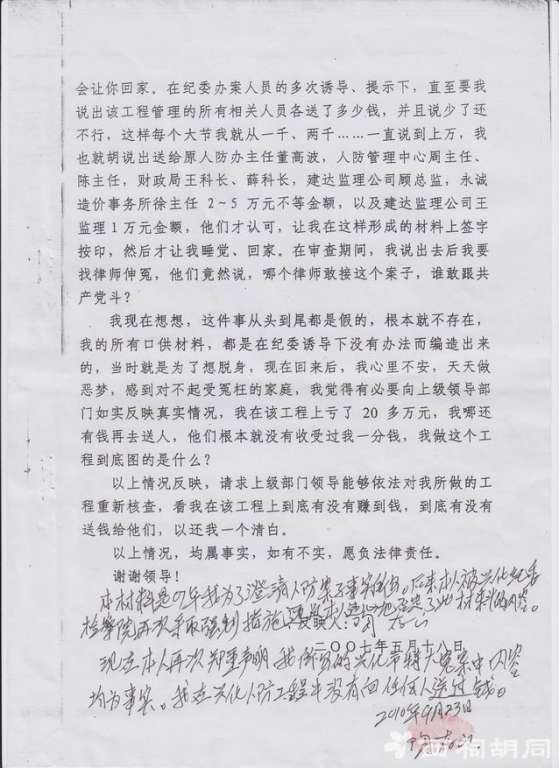 会让你回家。在纪委办案人员的多次诱导、提示下，直至要我
说出该工程管理的所有相关人员各送了多少钱，并且说少了还
不行，这样每个大节我就从一千、两千……一直说到上万，我
也就胡说出送给原人防办主任董高波，人防管理中心周主任、
陈主任，财政局王科长、薛科长，建达监理公司顾总监，永诚
造价事务所徐主任 2~5 万元不等金额，以及建达监理公司王
监理 1 万元金额，他们才认可，让我在这样形成的材料上签字
按印，然后才让我睡觉、回家。在审查期间，我说出去后我要
找律师伸冤，他们竟然说，哪个律师敢接这个案子，谁敢跟共
产党斗？
我现在想想，这件事从头到尾都是假的，根本就不存在，
我的所有口供材料，都是在纪委诱导下没有办法而编造出来
的，当时就是为了想脱身，现在回来后，我心里不安，天天做
恶梦，感到对不起受冤枉的家庭，我觉得有必要向上级领导部
门如实反映真实情况，我在该工程上亏了 20 多万元，我哪还
有钱再去送人，他们根本就没有收受过我一分钱，我做这个工
程到底图的是什么？
以上情况反映，请求上级部门领导能够依法对我所做的工
程重新核查，看我在该工程上到底有没有赚到钱，到底有没有
送钱给他们，以还我一个清白。
以上情况，均属事实，如有不实，愿负法律责任。
谢谢领导！
本材料是07年我为了澄清人防案子事实 后来本人被兴化纪委
检察院再次采取强制措施 材料的内容。
反映人：
二〇〇七年五月十八日
现在本人再次郑重声明 我 的兴化市特大冤案中内容
均为事实。我在兴化人防工程中没有向任何人送过钱。
2010年9月23日
西祠胡同